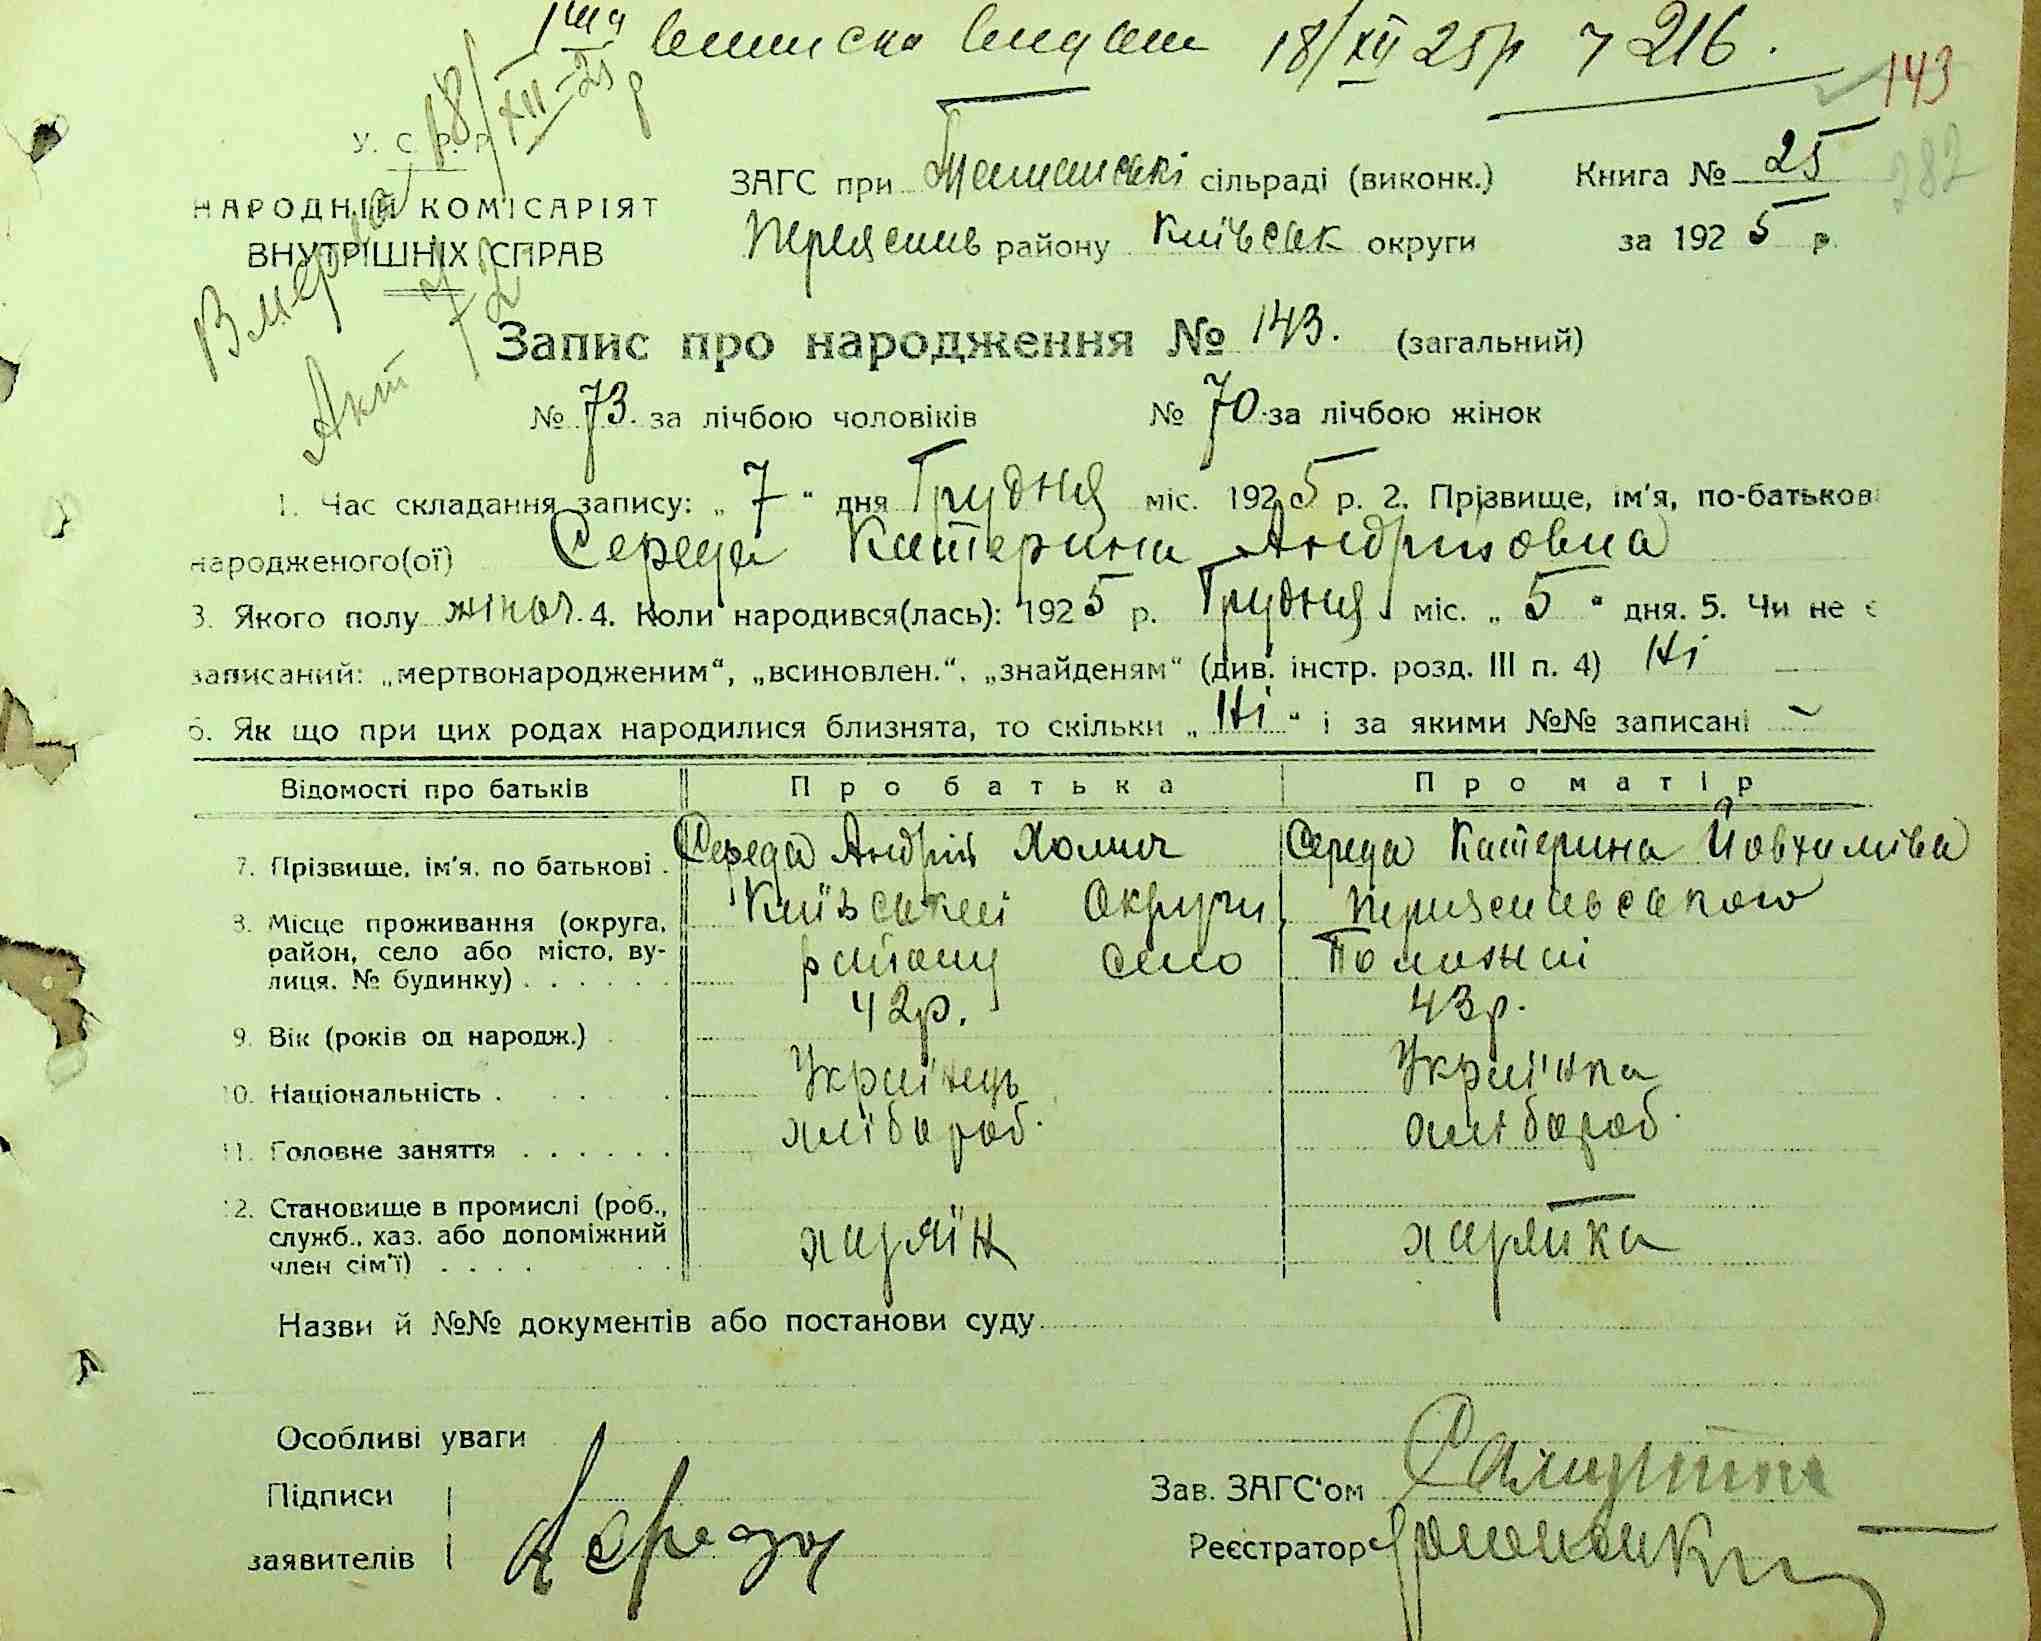 1ша виписка видана 18/XII 25р ч 216.
143
282
18/XII-25р
Вмерла
Акт ч 72
У. С. Р. Р.
НАРОДНІЙ КОМІСАРІЯТ
ВНУТРІШНІХ СПРАВ
ЗАГС при сільраді (виконк.) Книга № 25
Переяслив району Київськ округи за 1925 р.
Запис про народження № 143. (загальний)
№ 73. за лічбою чоловіків № 70 за лічбою жінок
1. Час складання запису: „7“ дня Грудня міс. 1925 р. 2. Прізвище, ім'я, по-батькові
народженого(ої) Середа Катерина Андріховна
3. Якого полу жіноч. 4. Коли народився(лась): 1925 р. Грудня міс. „5“ дня. 5. Чи не є
записаний: „мертвонародженим“, „всиновлен.“, „знайденям“ (див. інстр. розд. III п. 4) Ні
6. Як що при цих родах народилися близнята, то скільки „Ні“ і за якими №№ записані –
Відомості про батьків Про батька Про матір
7. Прізвище, ім'я, по батькові . Середа Андрій Хомич Середа Катерина Йовхимівна
8. Місце проживання (округа, район, село або місто, вулиця, № будинку) . . . . . . Київської Округи, Переяславського
району село Помоклі
9. Вік (років од народж.) 42р. 43р.
10. Національність . Українець Українка
11. Головне заняття . . . . . . хлібороб. хлібороб.
12. Становище в промислі (роб., служб., хаз. або допоміжний член сім'ї) . . . . хазяїн хазяйка
Назви й №№ документів або постанови суду
Особливі уваги
Підписи
заявителів Середа
Зав. ЗАГС'ом
Реєстратор